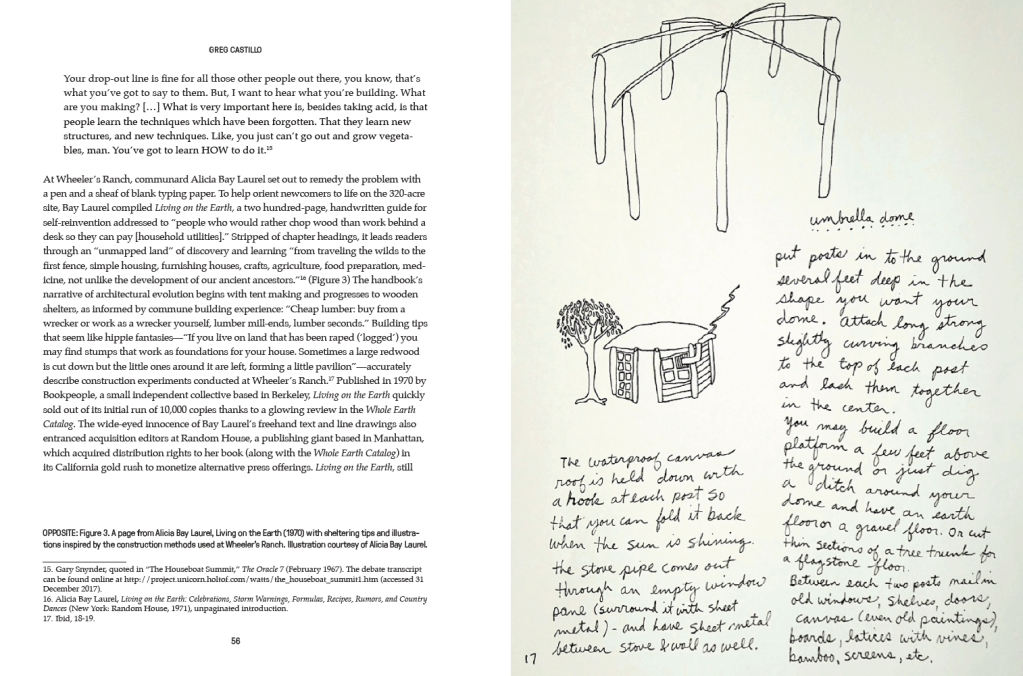 GREG CASTILLO
Your drop-out line is fine for all those other people out there, you know, that's
what you've got to say to them. But, I want to hear what you're building. What
are you making? […] What is very important here is, besides taking acid, is that
people learn the techniques which have been forgotten. That they learn new
structures, and new techniques. Like, you just can't go out and grow vegeta-
bles, man. You've got to learn HOW to do it.15
At Wheeler's Ranch, communard Alicia Bay Laurel set out to remedy the problem with
a pen and a sheaf of blank typing paper. To help orient newcomers to life on the 320-acre
site, Bay Laurel compiled Living on the Earth, a two hundred-page, handwritten guide for
self-reinvention addressed to “people who would rather chop wood than work behind a
desk so they can pay [household utilities].” Stripped of chapter headings, it leads readers
through an “unmapped land” of discovery and learning “from traveling the wilds to the
first fence, simple housing, furnishing houses, crafts, agriculture, food preparation, med-
icine, not unlike the development of our ancient ancestors.”16 (Figure 3) The handbook's
narrative of architectural evolution begins with tent making and progresses to wooden
shelters, as informed by commune building experience: “Cheap lumber: buy from a
wrecker or work as a wrecker yourself, lumber mill-ends, lumber seconds.” Building tips
that seem like hippie fantasies—“If you live on land that has been raped (‘logged’) you
may find stumps that work as foundations for your house. Sometimes a large redwood
is cut down but the little ones around it are left, forming a little pavilion”—accurately
describe construction experiments conducted at Wheeler's Ranch.17 Published in 1970 by
Bookpeople, a small independent collective based in Berkeley, Living on the Earth quickly
sold out of its initial run of 10,000 copies thanks to a glowing review in the Whole Earth
Catalog. The wide-eyed innocence of Bay Laurel's freehand text and line drawings also
entranced acquisition editors at Random House, a publishing giant based in Manhattan,
which acquired distribution rights to her book (along with the Whole Earth Catalog) in
its California gold rush to monetize alternative press offerings. Living on the Earth, still
OPPOSITE: Figure 3. A page from Alicia Bay Laurel, Living on the Earth (1970) with sheltering tips and illustra-
tions inspired by the construction methods used at Wheeler's Ranch. Illustration courtesy of Alicia Bay Laurel.
15. Gary Snynder, quoted in “The Houseboat Summit,” The Oracle 7 (February 1967). The debate transcript
can be found online at http://project.unicorn.holtof.com/watts/the_houseboat_summit1.htm (accessed 31
December 2017).
16. Alicia Bay Laurel, Living on the Earth: Celebrations, Storm Warnings, Formulas, Recipes, Rumors, and Country
Dances (New York: Random House, 1971), unpaginated introduction.
17. Ibid, 18-19.
56
umbrella dome
put posts in to the ground
several feet deep in the
shape you want your
dome. Attach long strong
slightly curving branches
to the top of each post
and lash them together
in the center.
You may build a floor
platform a few feet above
the ground or just dig
a ditch around your
dome and have an earth
floor or a gravel floor. Or cut
thin sections of a tree trunk for
a flagstone floor.
Between each two posts nail in
old windows, shelves, doors,
canvas (even old paintings),
boards, latices with vines,
bamboo, screens, etc.
The waterproof canvas
roof is held down with
a hook at each post so
that you can fold it back
when the sun is shining.
the stove pipe comes out
through an empty window
pane (surround it with sheet
metal) - and have sheet metal
between stove & wall as well.
17